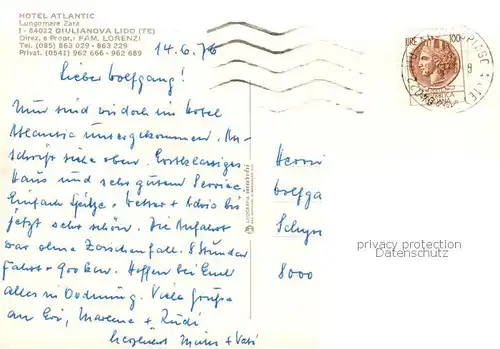 HOTEL ATLANTIC
Lungomare Zara
I - 64022 GIULIANOVA LIDO (TE)
Direz. e Propr.: FAM. LORENZI
Tel. (085) 863 029 - 863 229
Privat. (0541) 962 666 - 962 689
14.6.76
LIRE 100
Lieber Wolfgang!
Nun sind wir doch im Hotel
Atlantic untergekommen. An-
schrift siehe oben. Erstklassiges
Haus und sehr guter Service.
Einfach Spitze. Wetter + Adria bis
jetzt sehr schön. Die Anfahrt
war ohne Zwischenfall. 8 Stunden
Fahrt. Hoffen bei Euch
alles in Ordnung. Viele Grüße
an Evi, + Rudi
Mutti + Vati
Herrn
Wolfga
8000
privacy protection
Datenschutz